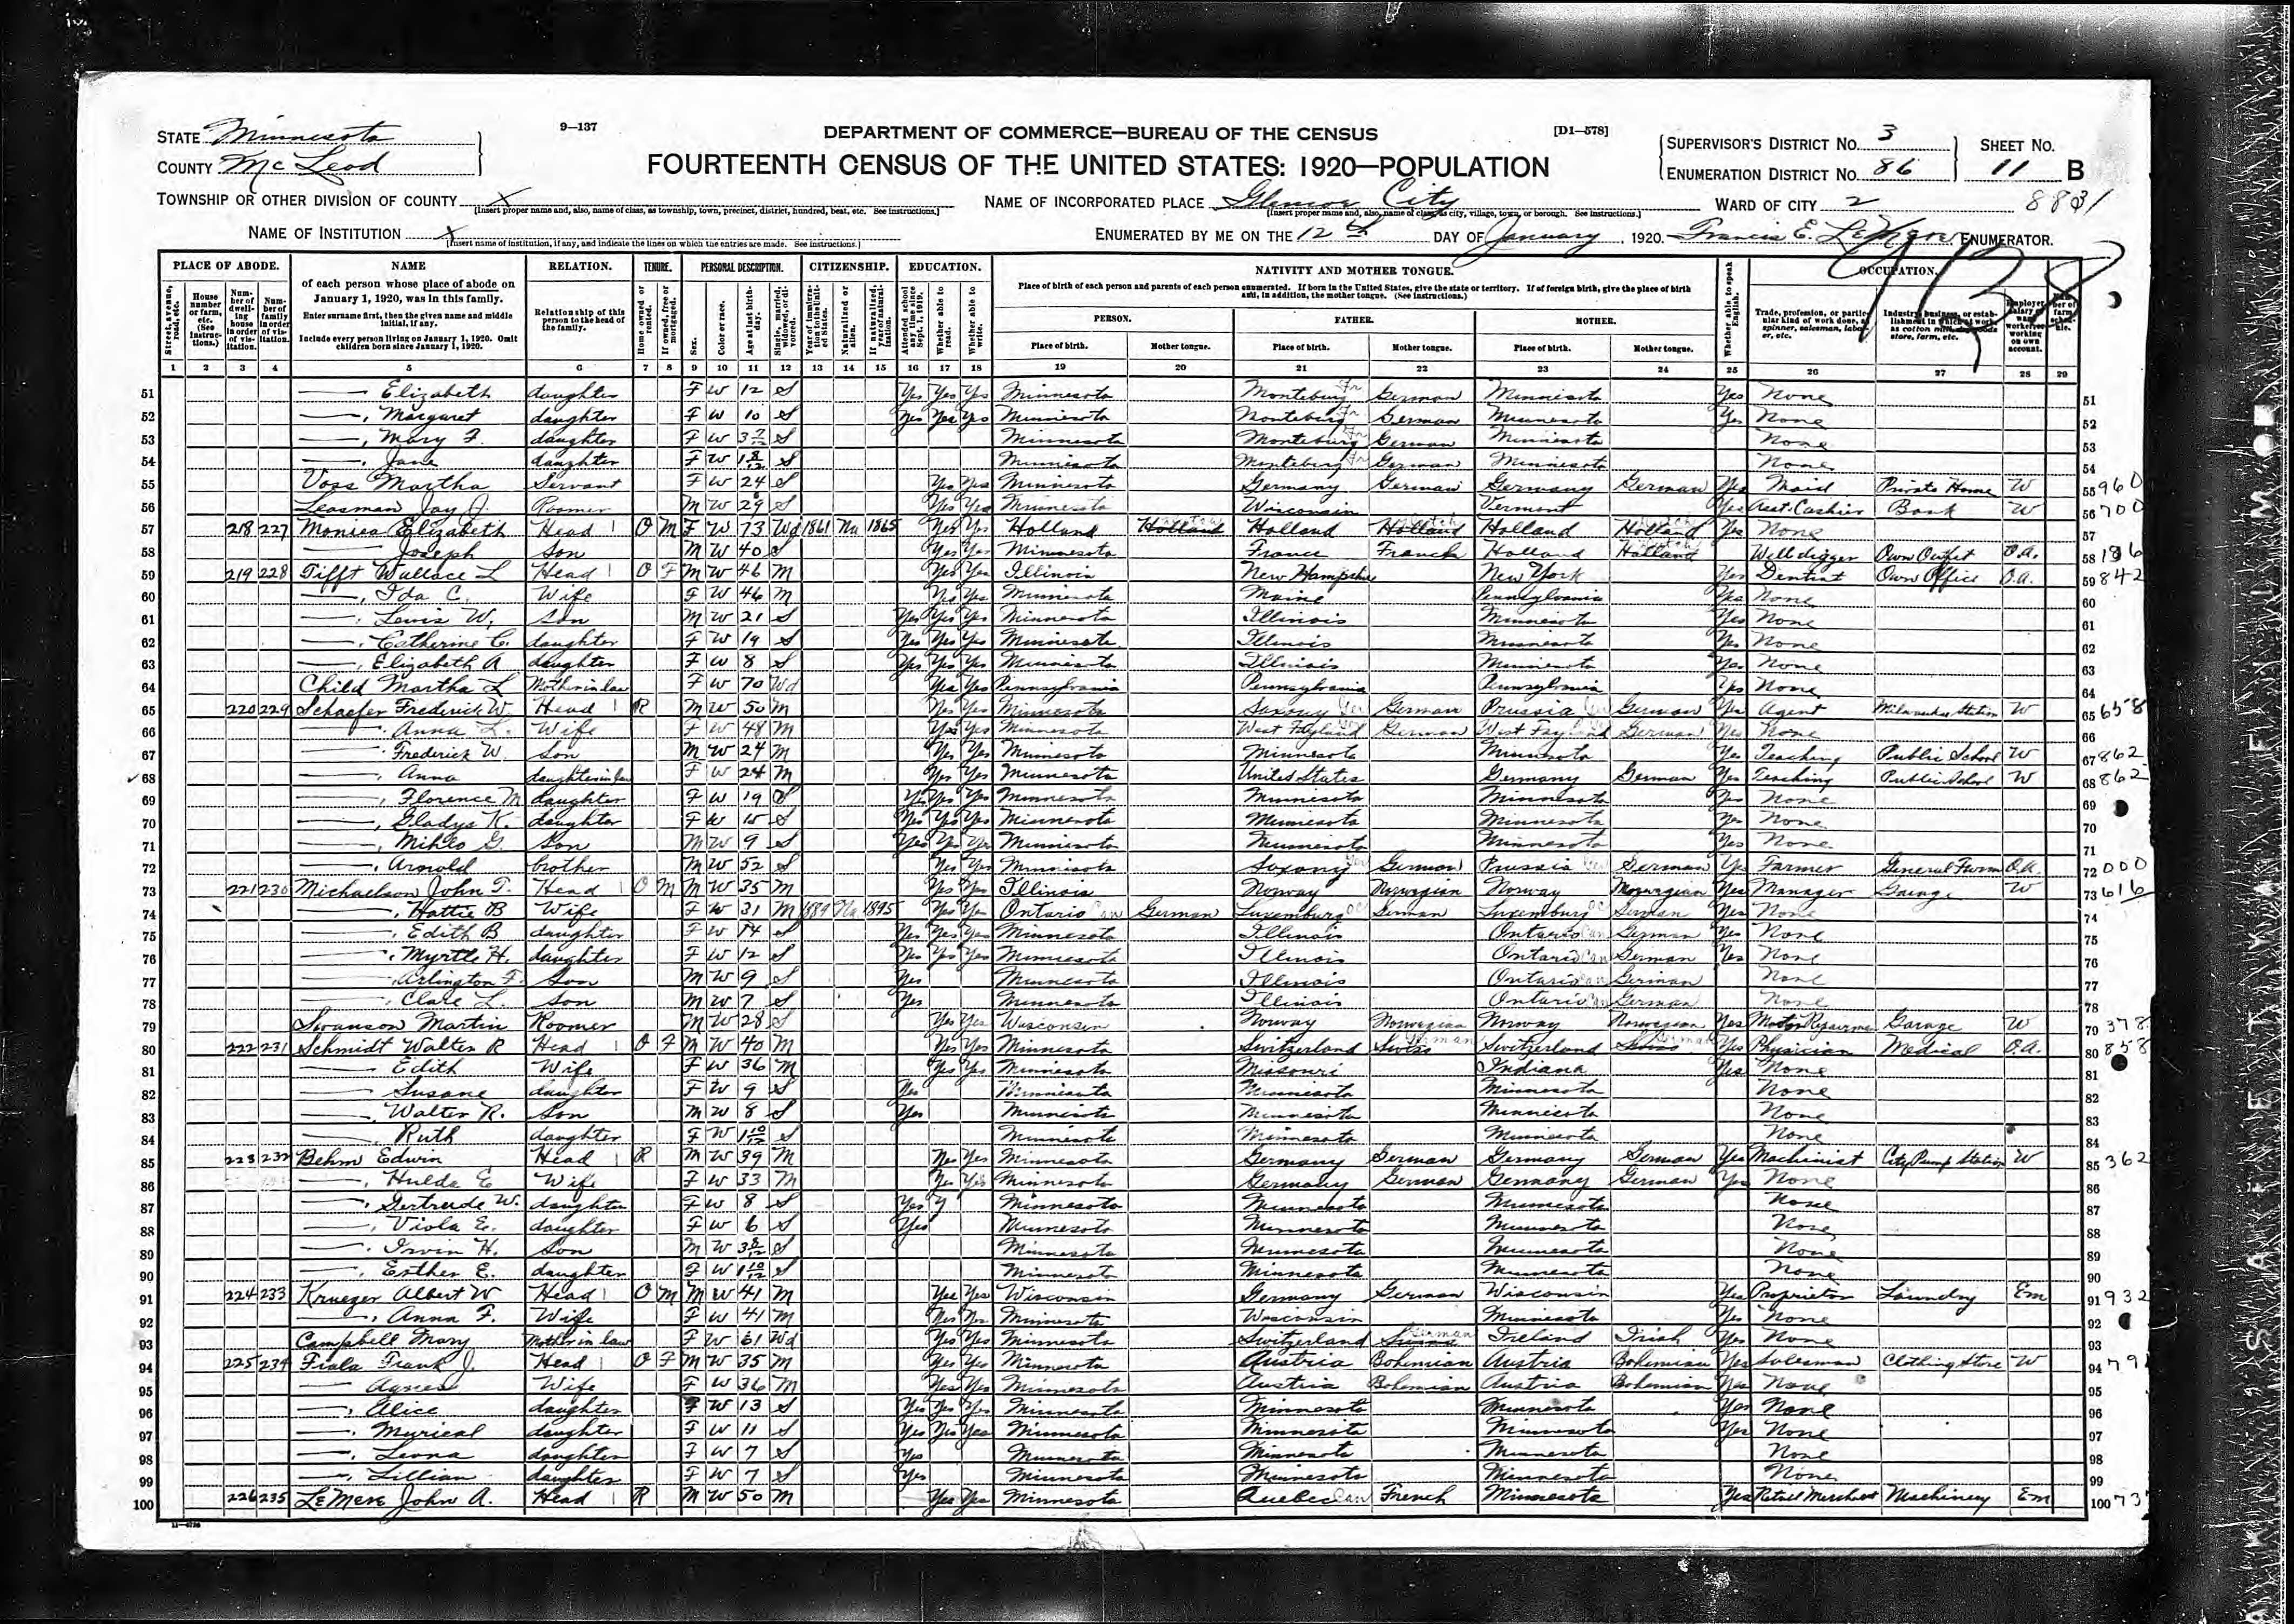 9—137
DEPARTMENT OF COMMERCE—BUREAU OF THE CENSUS
[D1—578]
FOURTEENTH CENSUS OF THE UNITED STATES: 1920—POPULATION
STATE Minnesota
COUNTY McLeod
SUPERVISOR'S DISTRICT No. 3
ENUMERATION DISTRICT No. 86
SHEET No. 11 B
TOWNSHIP OR OTHER DIVISION OF COUNTY X
[Insert proper name and, also, name of class, as township, town, precinct, district, hundred, beat, etc. See instructions.]
NAME OF INCORPORATED PLACE Glencoe City
[Insert proper name and, also, name of class, as city, village, town, or borough. See instructions.]
WARD OF CITY 2
NAME OF INSTITUTION X
[Insert name of institution, if any, and indicate the lines on which the entries are made. See instructions.]
ENUMERATED BY ME ON THE 12th DAY OF January, 1920. Francis E. ENUMERATOR.
PLACE OF ABODE. NAME RELATION. TENURE. PERSONAL DESCRIPTION. CITIZENSHIP. EDUCATION. NATIVITY AND MOTHER TONGUE. OCCUPATION.
51 —— Elizabeth daughter F W 12 S Yes Yes Yes Minnesota German Minnesota Yes None 51
52 ——, Margaret daughter F W 10 S Yes Yes Yes Minnesota German Minnesota Yes None 52
53 ——, Mary F. daughter F W 3 S Minnesota German Minnesota None 53
54 ——, Jane daughter F W 1 8/12 S Minnesota German Minnesota None 54
55 Voss Martha Servant F W 24 S Yes Yes Minnesota Germany German Germany German Yes Maid Private Home W 55 960
56 Leasman Jay J. Roomer M W 29 S Yes Yes Minnesota Wisconsin Vermont Yes Asst. Cashier Bank W 56 700
57 218 227 Monica Elizabeth Head O M F W 73 Wd 1861 Na 1865 Yes Yes Holland Holland Holland Holland Holland Holland Yes None 57
58 —— Joseph Son M W 40 S Yes Yes Minnesota France French Holland Holland Well digger Own Outfit O.A. 58 186
59 219 228 Tifft Wallace L Head O F M W 46 M Yes Yes Illinois New Hampshire New York Yes Dentist Own Office O.A. 59 842
60 ——, Ida C. Wife F W 46 M Yes Yes Minnesota Maine Pennsylvania Yes None 60
61 ——, Lewis W. Son M W 21 S Yes Yes Yes Minnesota Illinois Minnesota Yes None 61
62 ——, Catherine C. daughter F W 19 S Yes Yes Yes Minnesota Illinois Minnesota Yes None 62
63 ——, Elizabeth A daughter F W 8 S Yes Yes Yes Minnesota Illinois Minnesota Yes None 63
64 Child Martha L Mother in law F W 70 Wd Yes Yes Pennsylvania Pennsylvania Pennsylvania Yes None 64
65 220 229 Schaefer Frederick W. Head R M W 50 M Yes Yes Minnesota Saxony German Prussia German Yes Agent Milwaukee Station W 65 658
66 ——, Anna L. Wife F W 48 M Yes Yes Minnesota German German Yes None 66
67 ——, Frederick W. Son M W 24 M Yes Yes Minnesota Minnesota Minnesota Yes Teaching Public School W 67 862
68 ——, Anna daughter in law F W 24 M Yes Yes Minnesota United States Germany German Yes Teaching Public School W 68 862
69 ——, Florence M daughter F W 19 S Yes Yes Yes Minnesota Minnesota Minnesota Yes None 69
70 ——, Gladys K. daughter F W 15 S Yes Yes Yes Minnesota Minnesota Minnesota Yes None 70
71 ——, G. Son M W 9 S Yes Yes Yes Minnesota Minnesota Minnesota Yes None 71
72 ——, Arnold brother M W 52 S Yes Yes Minnesota Saxony German Prussia German Yes Farmer General Farm O.A. 72 000
73 221 230 Michaelson John T. Head O M M W 35 M Yes Yes Illinois Norway Norwegian Norway Norwegian Yes Manager Garage W 73 616
74 ——, Hattie B Wife F W 31 M 1889 Na 1895 Yes Yes Ontario Can German Luxemburg German Luxemburg German Yes None 74
75 ——, Edith B daughter F W 14 S Yes Yes Yes Minnesota Illinois Ontario Can German Yes None 75
76 ——, Myrtle H. daughter F W 12 S Yes Yes Yes Minnesota Illinois Ontario Can German Yes None 76
77 ——, Arlington F. Son M W 9 S Yes Minnesota Illinois Ontario Can German None 77
78 ——, Clare L. Son M W 7 S Yes Minnesota Illinois Ontario Can German None 78
79 Swanson Martin Roomer M W 28 S Yes Yes Wisconsin Norway Norwegian Norway Norwegian Yes Motor Repairman Garage W 79 378
80 222 231 Schmidt Walter R Head O F M W 40 M Yes Yes Minnesota Switzerland Swiss German Switzerland Swiss German Yes Physician Medical O.A. 80 858
81 —— Edith Wife F W 36 M Yes Yes Minnesota Missouri Indiana Yes None 81
82 —— Susane daughter F W 9 S Yes Minnesota Minnesota Minnesota None 82
83 ——, Walter R. Son M W 8 S Yes Minnesota Minnesota Minnesota None 83
84 ——, Ruth daughter F W 1 10/12 S Minnesota Minnesota Minnesota None 84
85 223 232 Behm Edwin Head R M W 39 M Yes Yes Minnesota Germany German Germany German Yes Machinist City Pump Station W 85 362
86 ——, Hulda E Wife F W 33 M Yes Yes Minnesota Germany German Germany German Yes None 86
87 ——, Gertrude W. daughter F W 8 S Yes y Minnesota Minnesota Minnesota None 87
88 ——, Viola E. daughter F W 6 S Yes Minnesota Minnesota Minnesota None 88
89 ——, Irvin H. Son M W 3 S Minnesota Minnesota Minnesota None 89
90 ——, Esther E. daughter F W 1 10/12 S Minnesota Minnesota Minnesota None 90
91 224 233 Krueger Albert W Head O M M W 41 M Yes Yes Wisconsin Germany German Wisconsin Yes Proprietor Laundry Em 91 932
92 ——, Anna F. Wife F W 41 M Yes Yes Minnesota Wisconsin Minnesota Yes None 92
93 Campbell Mary Mother in law F W 61 Wd Yes Yes Minnesota Switzerland Swiss German Ireland Irish Yes None 93
94 225 234 Fiala Frank J. Head O F M W 35 M Yes Yes Minnesota Austria Bohemian Austria Bohemian Yes Salesman Clothing Store W 94 79
95 —— Agnes Wife F W 36 M Yes Yes Minnesota Austria Bohemian Austria Bohemian Yes None 95
96 ——, Alice daughter F W 13 S Yes Yes Yes Minnesota Minnesota Minnesota Yes None 96
97 ——, Myrieal daughter F W 11 S Yes Yes Yes Minnesota Minnesota Minnesota Yes None 97
98 ——, Leona daughter F W 7 S Yes Minnesota Minnesota Minnesota None 98
99 ——, Lillian daughter F W 7 S Yes Minnesota Minnesota Minnesota None 99
100 226 235 LeMere John A. Head R M W 50 M Yes Yes Minnesota Quebec Can French Minnesota Yes Retail Merchant Machinery Em 100 73